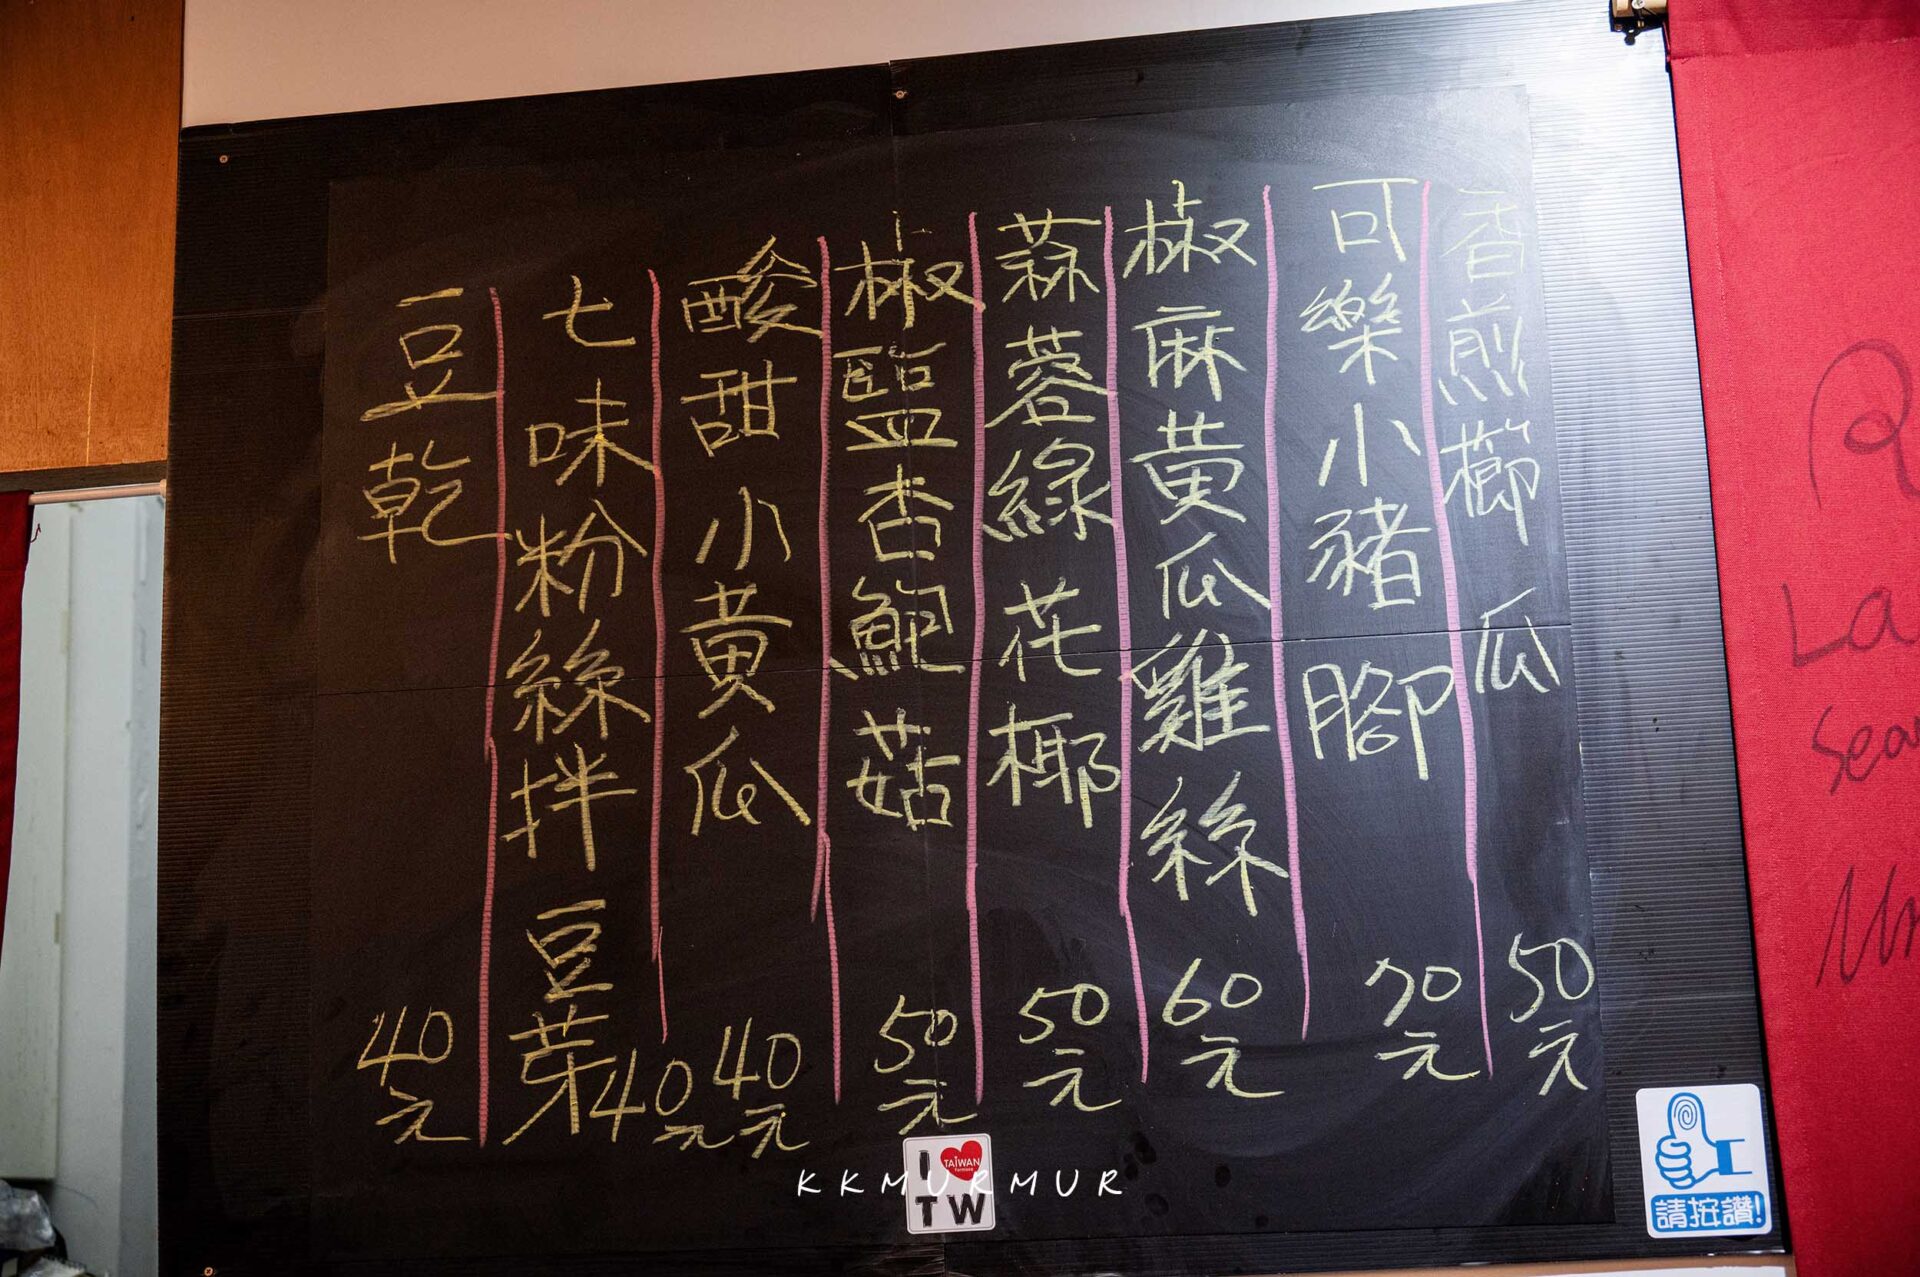 香煎櫛瓜 50元
可樂小豬腳 70元
椒麻黃瓜雞絲 60元
蒜蓉綠花椰 50元
椒鹽杏鮑菇 50元
酸甜小黃瓜 40元
七味粉絲拌豆芽 40元
豆乾 40元
I TAIWAN
TW
KKMURMUR
請按讚!
La